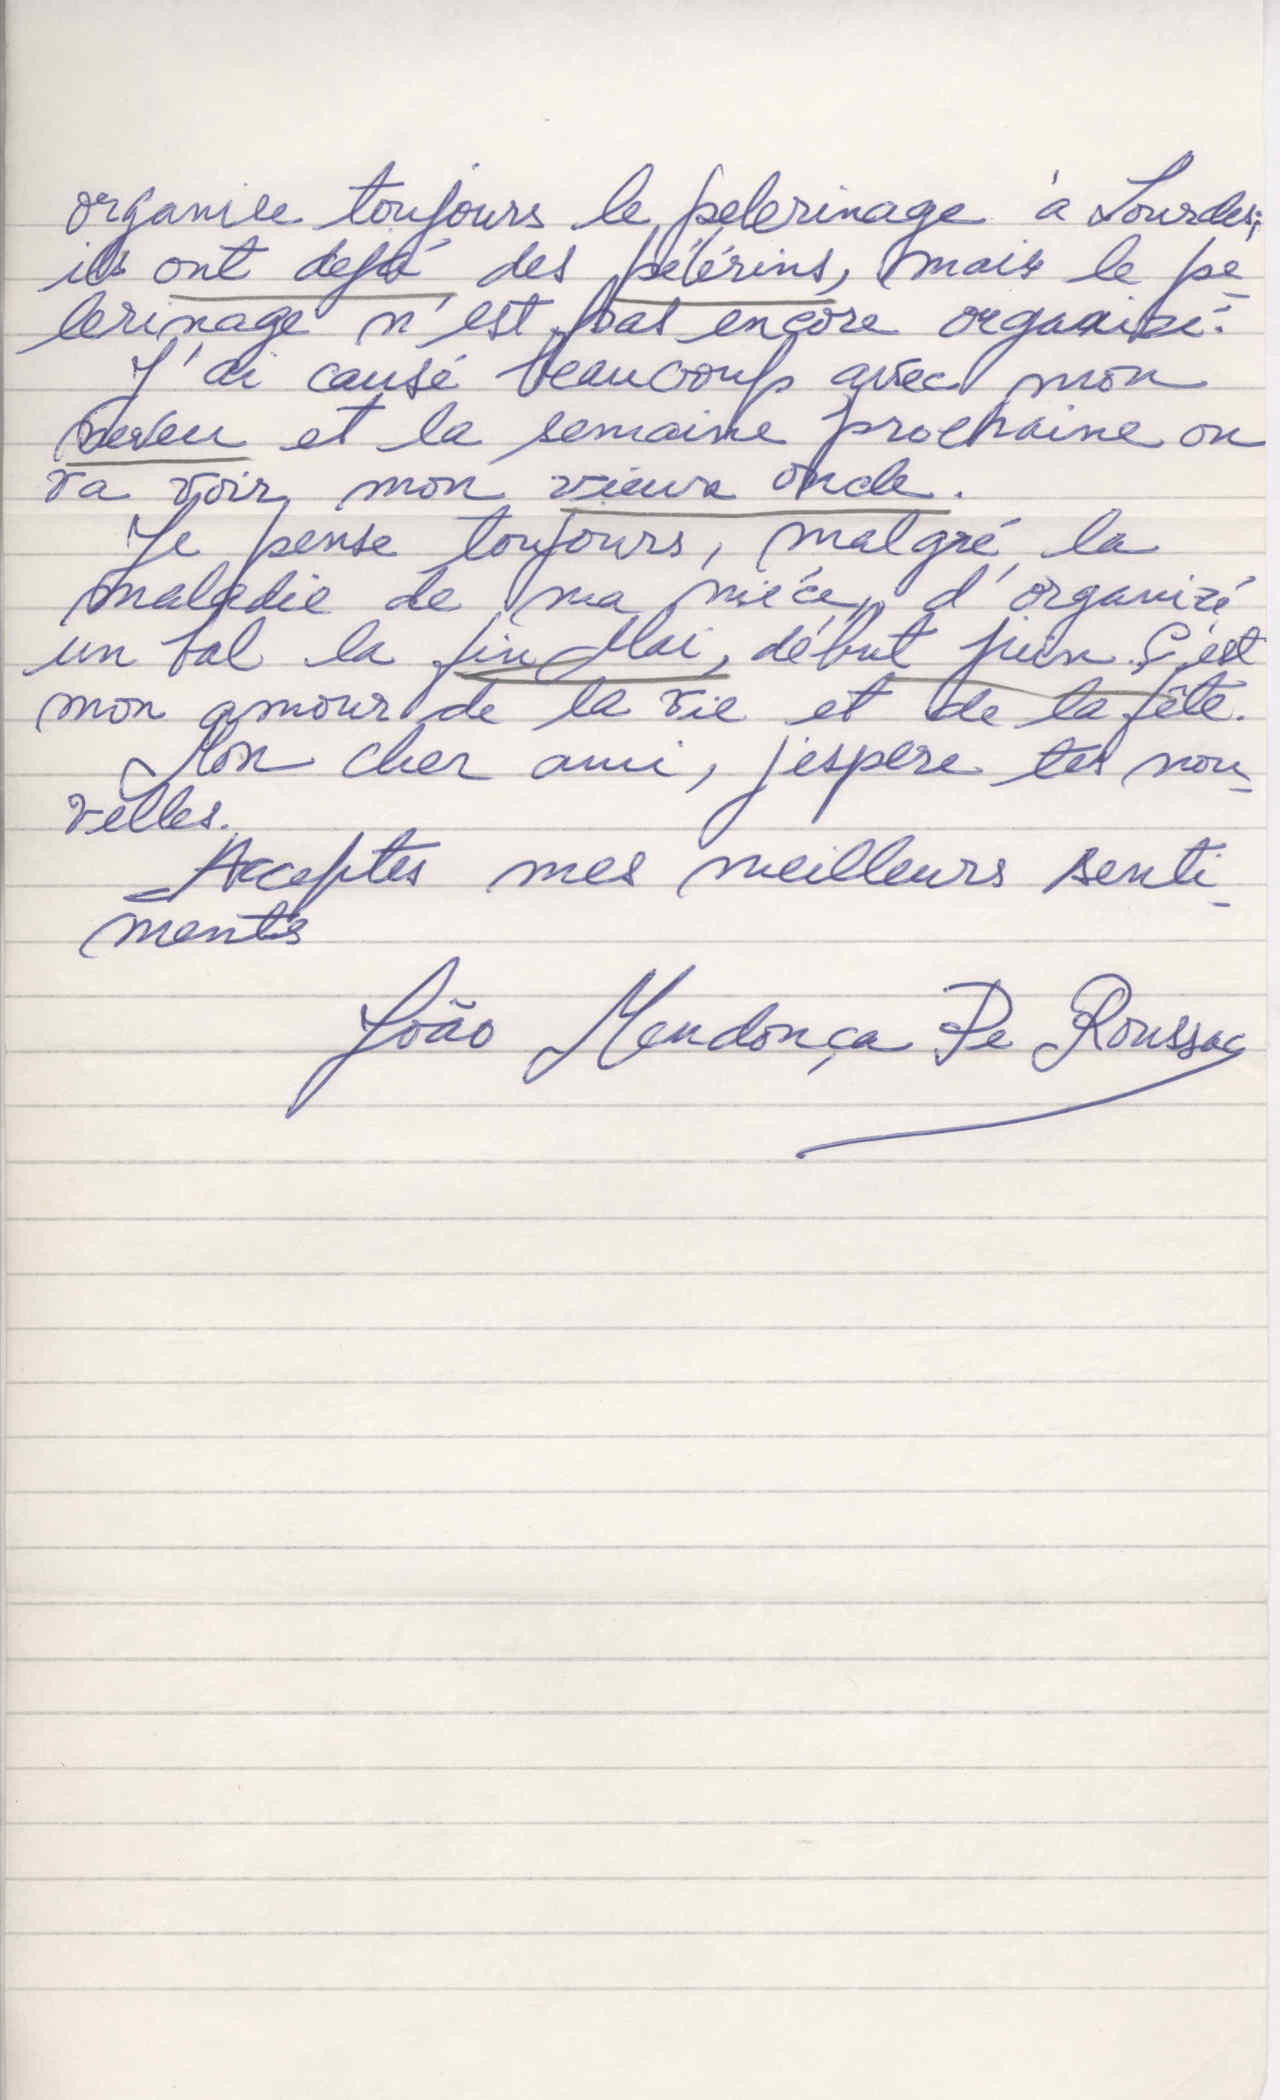 organise toujours le pelerinage à Lourdes;
ils ont dejá des pélérins, mais le pe-
lerinage n'est pas encore organisé.
J'ai causé beaucoup avec mon
neveu et la semaine prochaine on
va voir mon vieux oncle.
Je pense toujours, malgré la
maladie de ma niéce, d'organizé
un bal la fin Mai, début juin. C'est
mon amour de la vie et de la fête.
Mon cher ami, j'espere tes nou-
velles.
Acceptes mes meilleurs senti-
ments
João Mendonça De Roussac